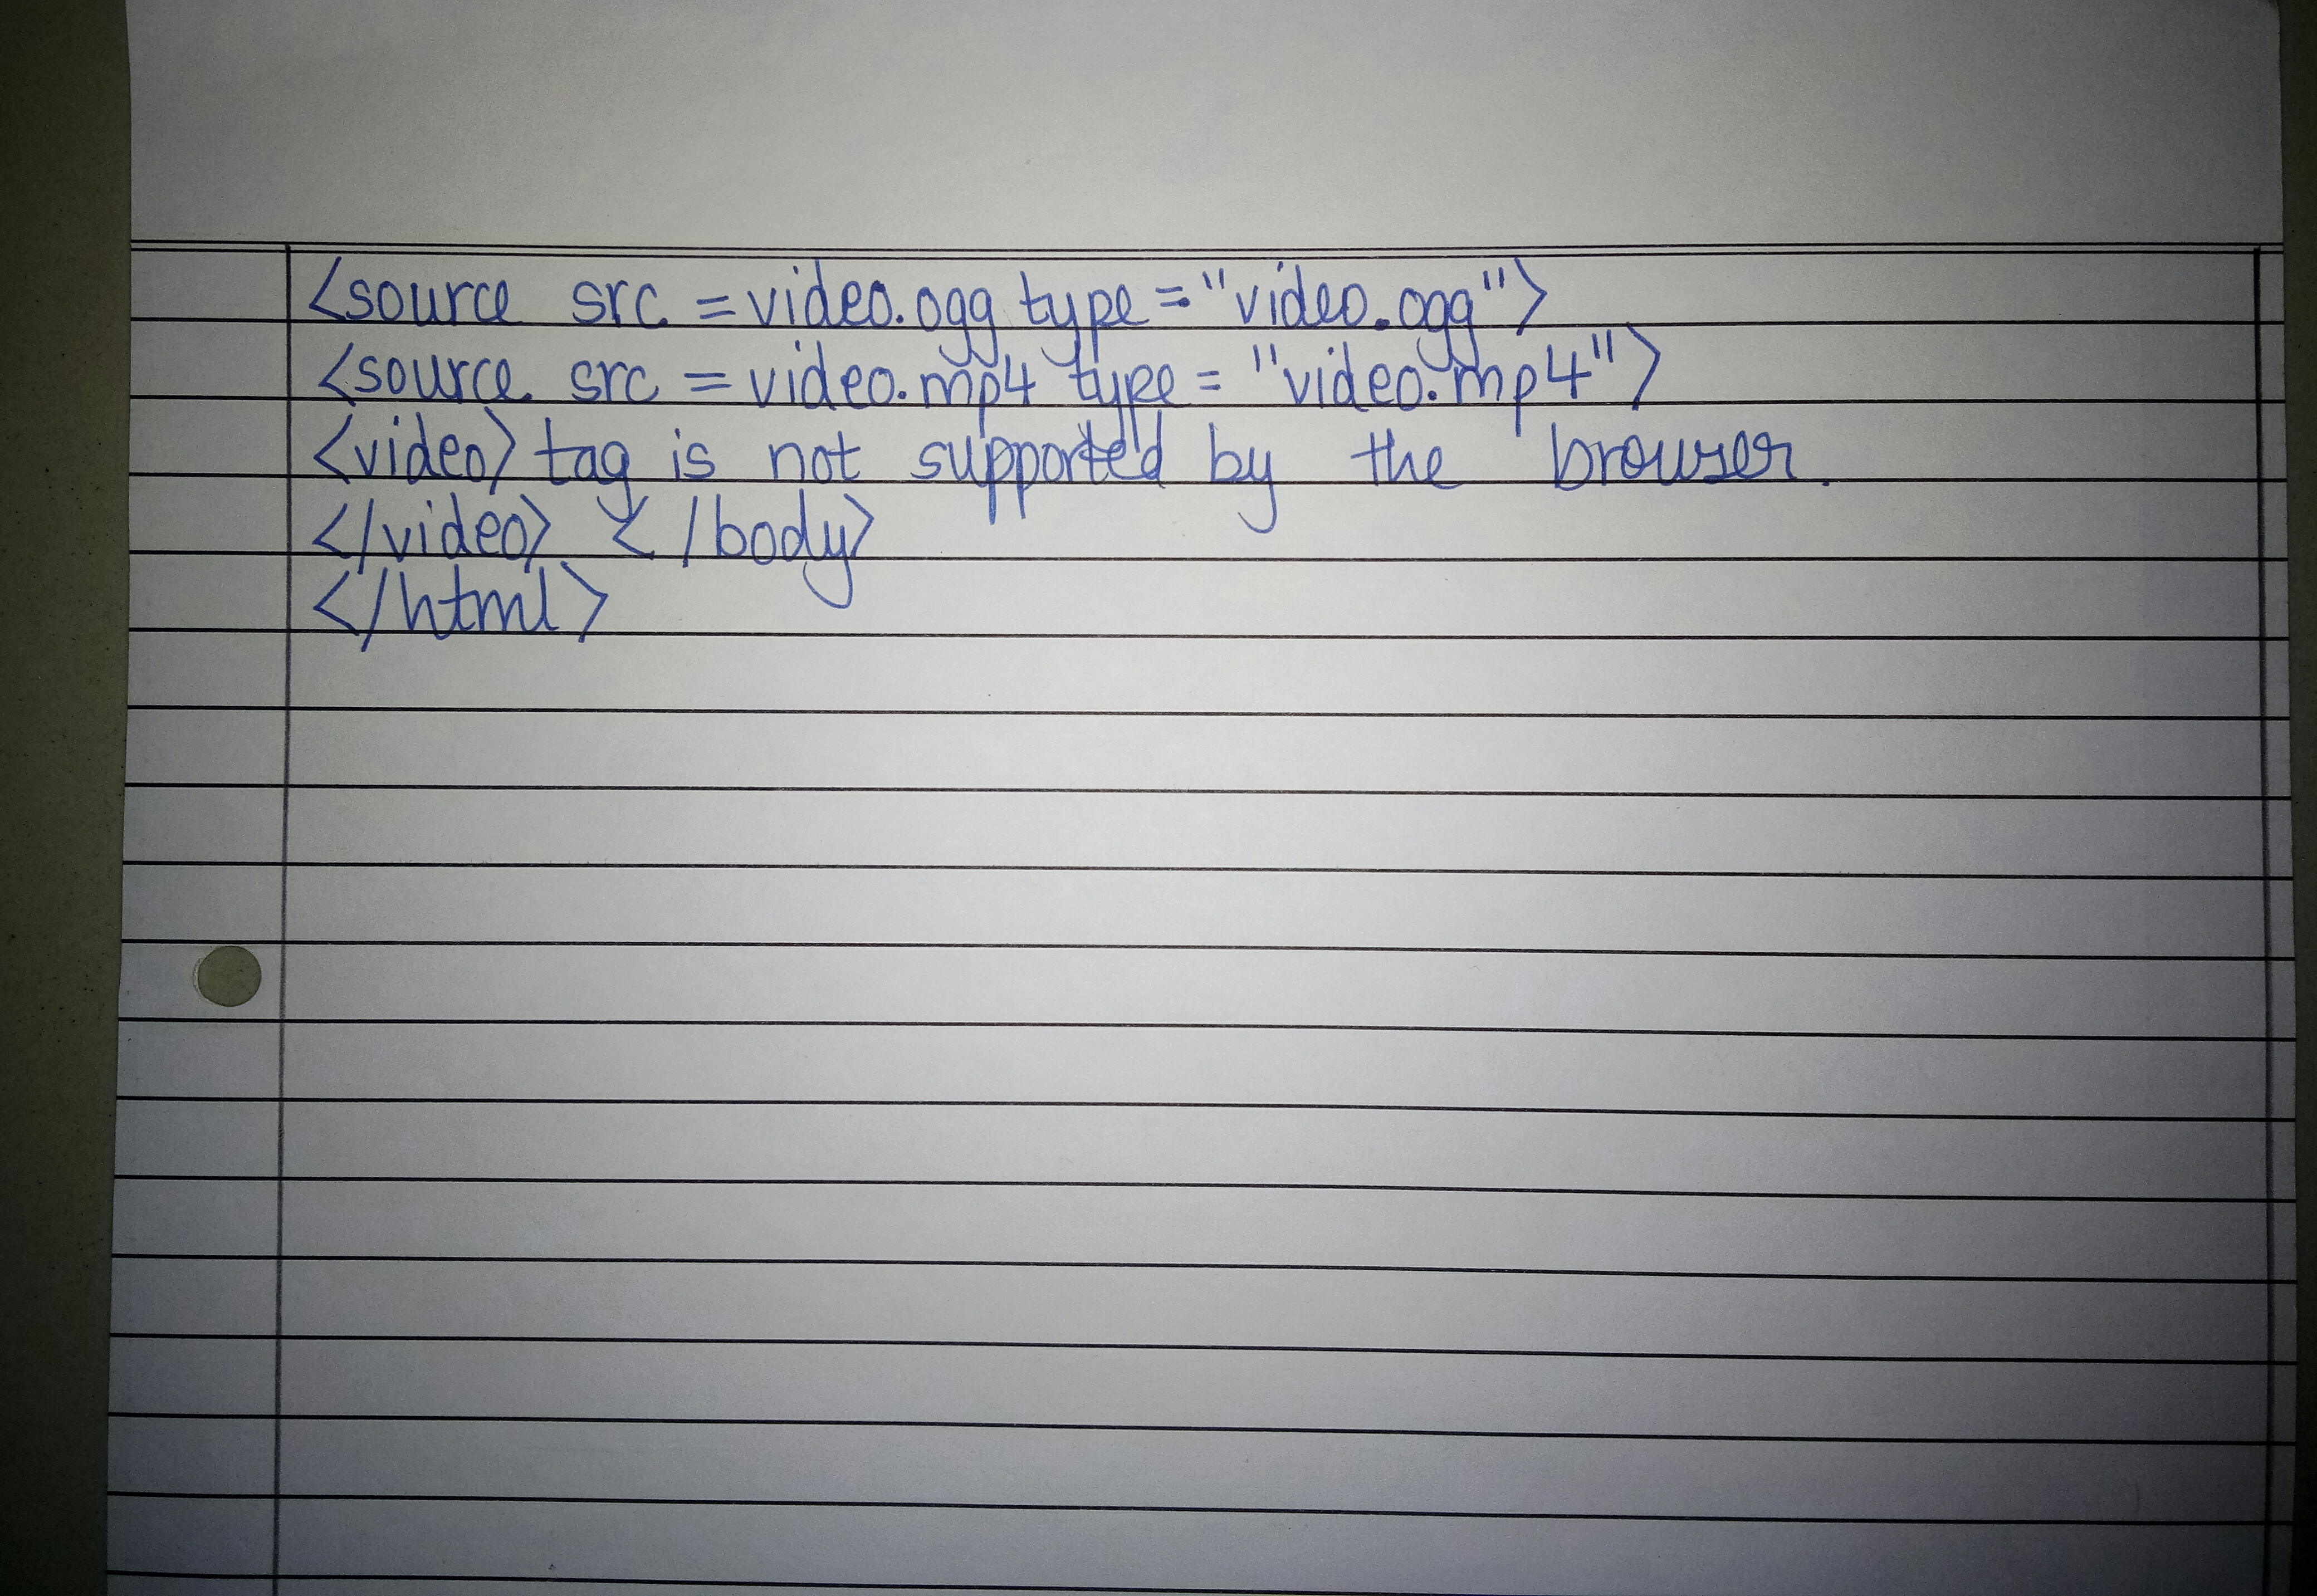 <source src = video.ogg type = "video.ogg">
<source src = video.mp4 type = "video.mp4">
<video> tag is not supported by the browser.
</video> </body>
</html>